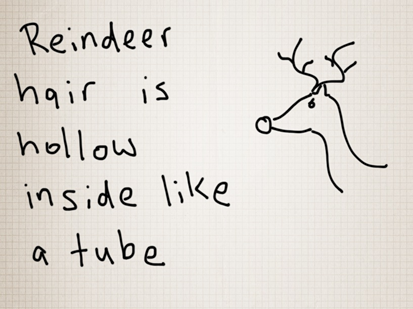 Reindeer
hair is
hollow
inside like
a tube